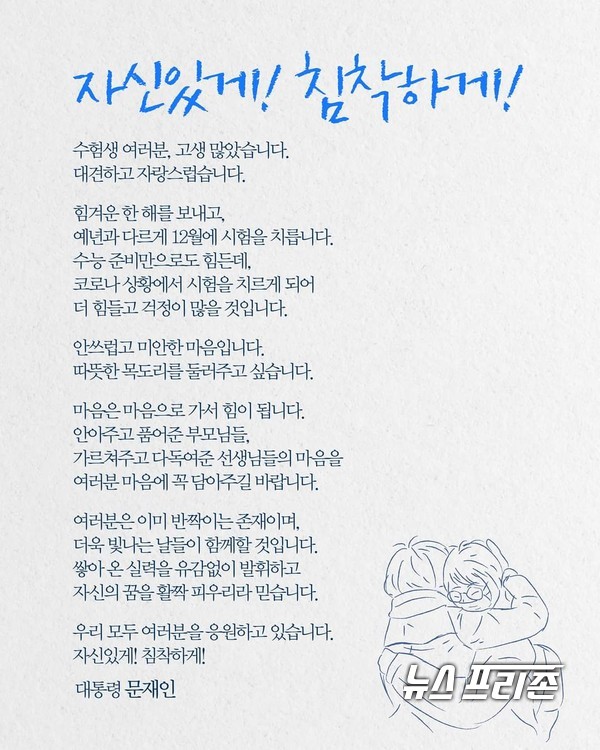 자신있게! 침착하게!
수험생 여러분, 고생 많았습니다.
대견하고 자랑스럽습니다.
힘겨운 한 해를 보내고,
예년과 다르게 12월에 시험을 치릅니다.
수능 준비만으로도 힘든데,
코로나 상황에서 시험을 치르게 되어
더 힘들고 걱정이 많을 것입니다.
안쓰럽고 미안한 마음입니다.
따뜻한 목도리를 둘러주고 싶습니다.
마음은 마음으로 가서 힘이 됩니다.
안아주고 품어준 부모님들,
가르쳐주고 다독여준 선생님들의 마음을
여러분 마음에 꼭 담아주길 바랍니다.
여러분은 이미 반짝이는 존재이며,
더욱 빛나는 날들이 함께할 것입니다.
쌓아 온 실력을 유감없이 발휘하고
자신의 꿈을 활짝 피우리라 믿습니다.
우리 모두 여러분을 응원하고 있습니다.
자신있게! 침착하게!
대통령 문재인
뉴스프리존